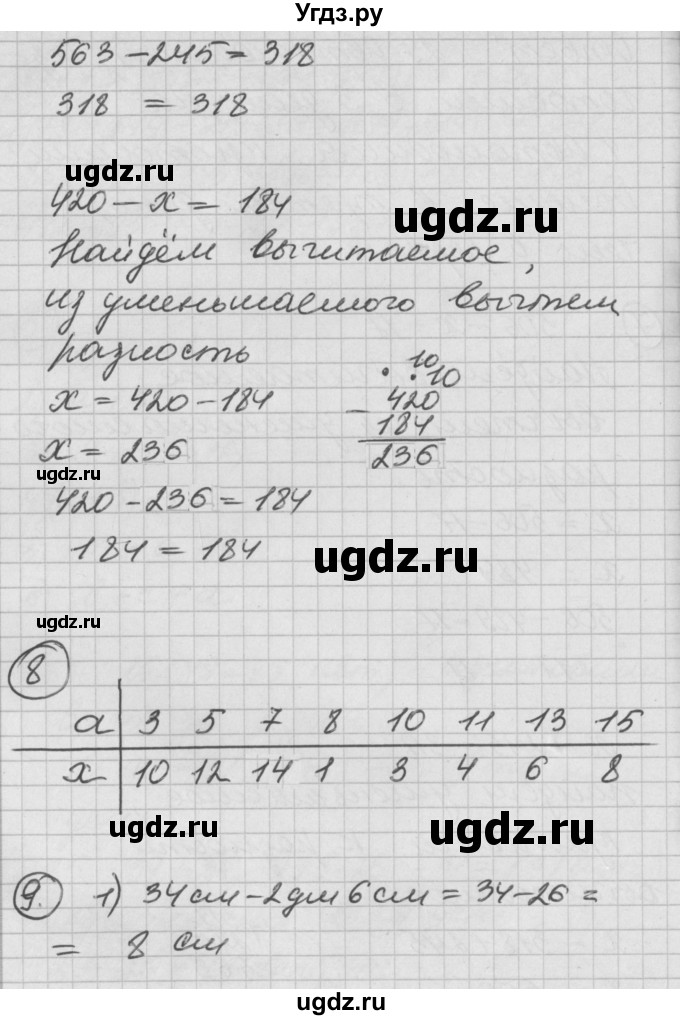 Угдз.ру
563 - 245 = 318
318 = 318
ugdz.ru
420 - x = 184
ugdz.ru
Найдём вычитаемое,
из уменьшаемого вычтем
разность
10
• • 10
x = 420 - 184 - 420
184
x = 236 236
ugdz.ru
420 - 236 = 184
184 = 184
ugdz.ru
ugdz.ru
8
a | 3 5 7 8 10 11 13 15
x | 10 12 14 1 3 4 6 8
ugdz.ru ugdz.ru
9. 1) 34 см - 2 дм 6 см = 34 - 26 =
= 8 см
ugdz.ru